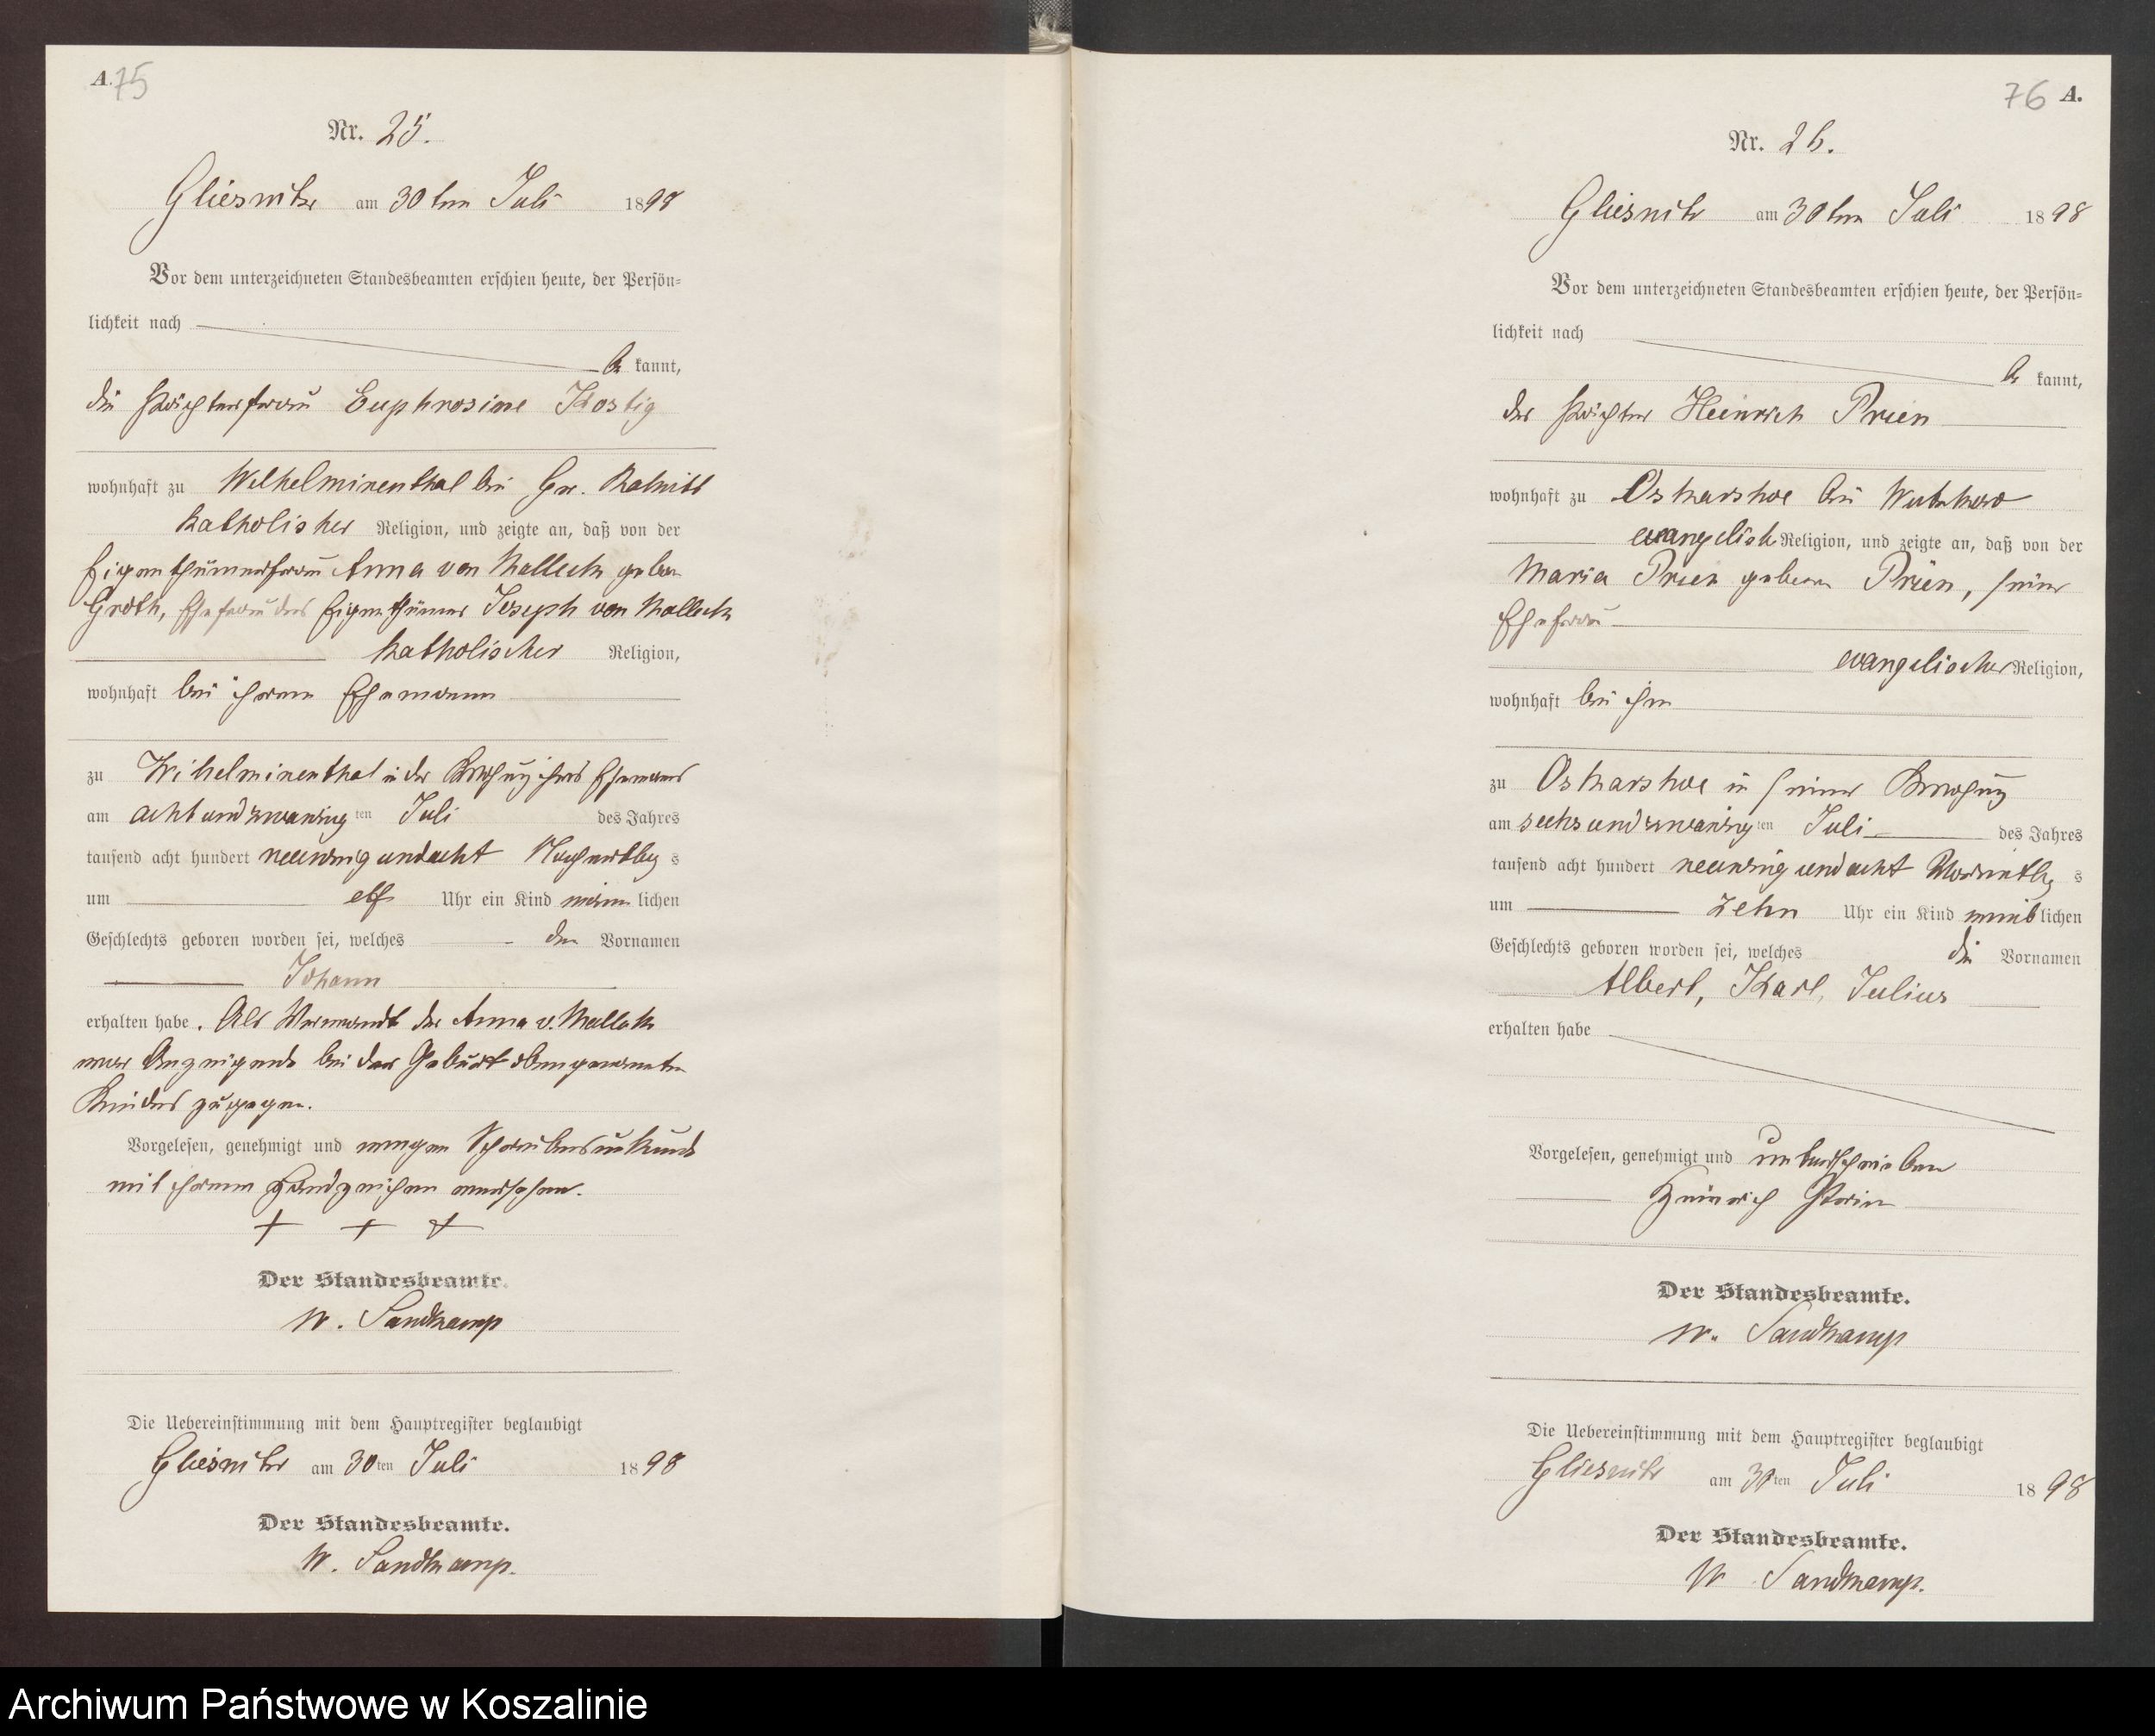 A. 75
Nr. 25.
Gliesnitz am 30ten Juli 1898
Vor dem unterzeichneten Standesbeamten erschien heute, der Persön-
lichkeit nach
be kannt,
die Pächterfrau Euphrosine Kostig
wohnhaft zu Wilhelminenthal bei Gr.
katholischer Religion, und zeigte an, daß von der
Eigenthümerfrau Anna von Malleck gebor.
Groth, Ehefrau des Eigenthümers Joseph von Malleck
katholischer Religion,
wohnhaft bei ihrem Ehemann
zu Wilhelminenthal in der Behausung ihres Ehemanns
am acht und zwanzig ten Juli des Jahres
tausend acht hundert neunzig und acht Nachmittag s
um elf Uhr ein Kind männ lichen
Geschlechts geboren worden sei, welches den Vornamen
Johann
erhalten habe. Als Verwandte der Anna v. Malleck
war Anzeigende bei der Geburt obengenannten
Kindes zugegen.
Vorgelesen, genehmigt und wegen Schreibensunkunde
mit ihrem Handzeichen versehen.
+ + +
Der Standesbeamte.
W. Sandkamp
Die Uebereinstimmung mit dem Hauptregister beglaubigt
Gliesnitz am 30ten Juli 1898
Der Standesbeamte.
W. Sandkamp.
76 A.
Nr. 26.
Gliesnitz am 30ten Juli 1898
Vor dem unterzeichneten Standesbeamten erschien heute, der Persön-
lichkeit nach
be kannt,
der Pächter Heinrich Prien
wohnhaft zu Oskarshoe bei
evangelisch Religion, und zeigte an, daß von der
Maria Prien geboren Prien, seiner
Ehefrau
evangelischer Religion,
wohnhaft bei ihm
zu Oskarshoe in seiner Behausung
am sechs und zwanzig ten Juli des Jahres
tausend acht hundert neunzig und acht Vormittag s
um zehn Uhr ein Kind männlichen
Geschlechts geboren worden sei, welches die Vornamen
Albert, Karl, Julius
erhalten habe
Vorgelesen, genehmigt und unterschrieben
Heinrich Prien
Der Standesbeamte.
W. Sandkamp
Die Uebereinstimmung mit dem Hauptregister beglaubigt
Gliesnitz am 30ten Juli 1898
Der Standesbeamte.
W Sandkamp.
Archiwum Państwowe w Koszalinie